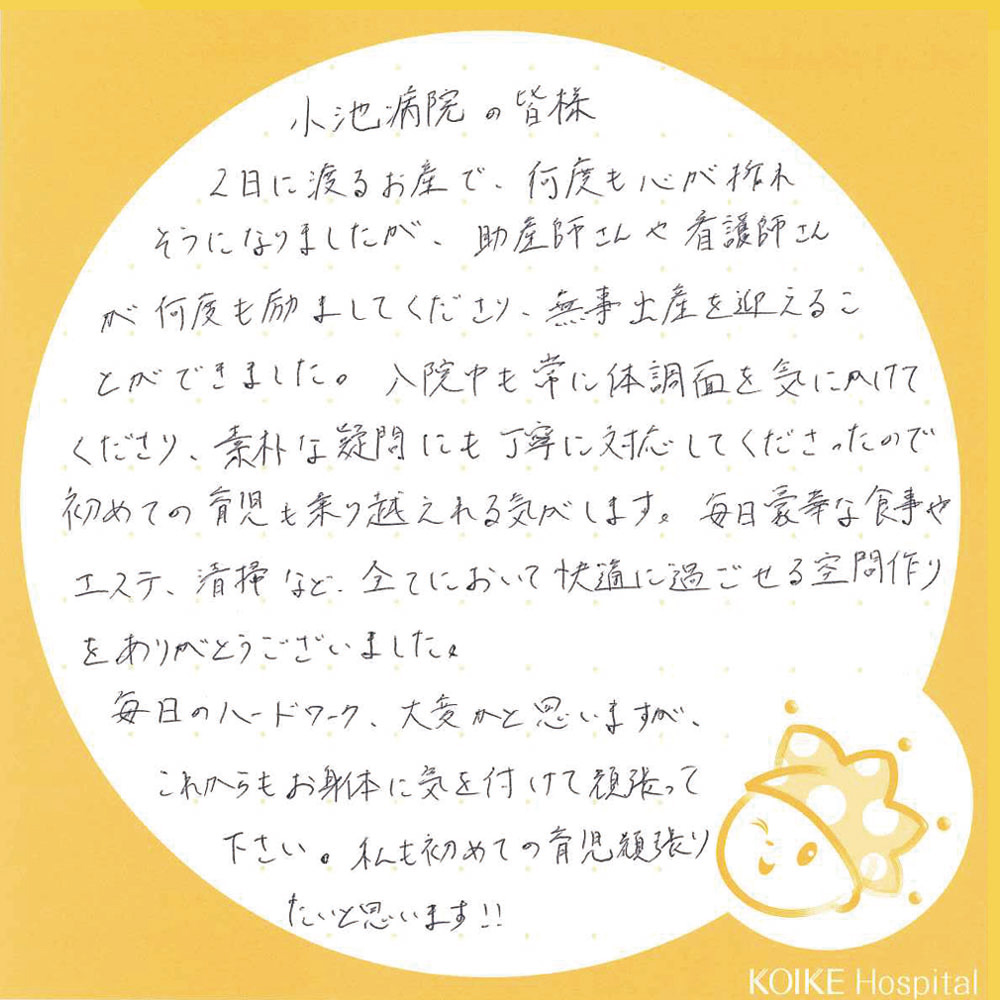 小池病院の皆様
2日に渡るお産で、何度も心が折れ
そうになりましたが、助産師さんや看護師さん
が何度も励ましてくださり、無事出産を迎えるこ
とができました。入院中も常に体調面を気にかけて
くださり、素朴な疑問にも丁寧に対応してくださったので
初めての育児も乗り越えれる気がします。毎日豪華な食事や
エステ、清掃など、全てにおいて快適に過ごせる空間作り
をありがとうございました。
毎日のハードワーク、大変かと思いますが、
これからもお身体に気を付けて頑張って
下さい。私も初めての育児頑張り
たいと思います!!
KOIKE Hospital